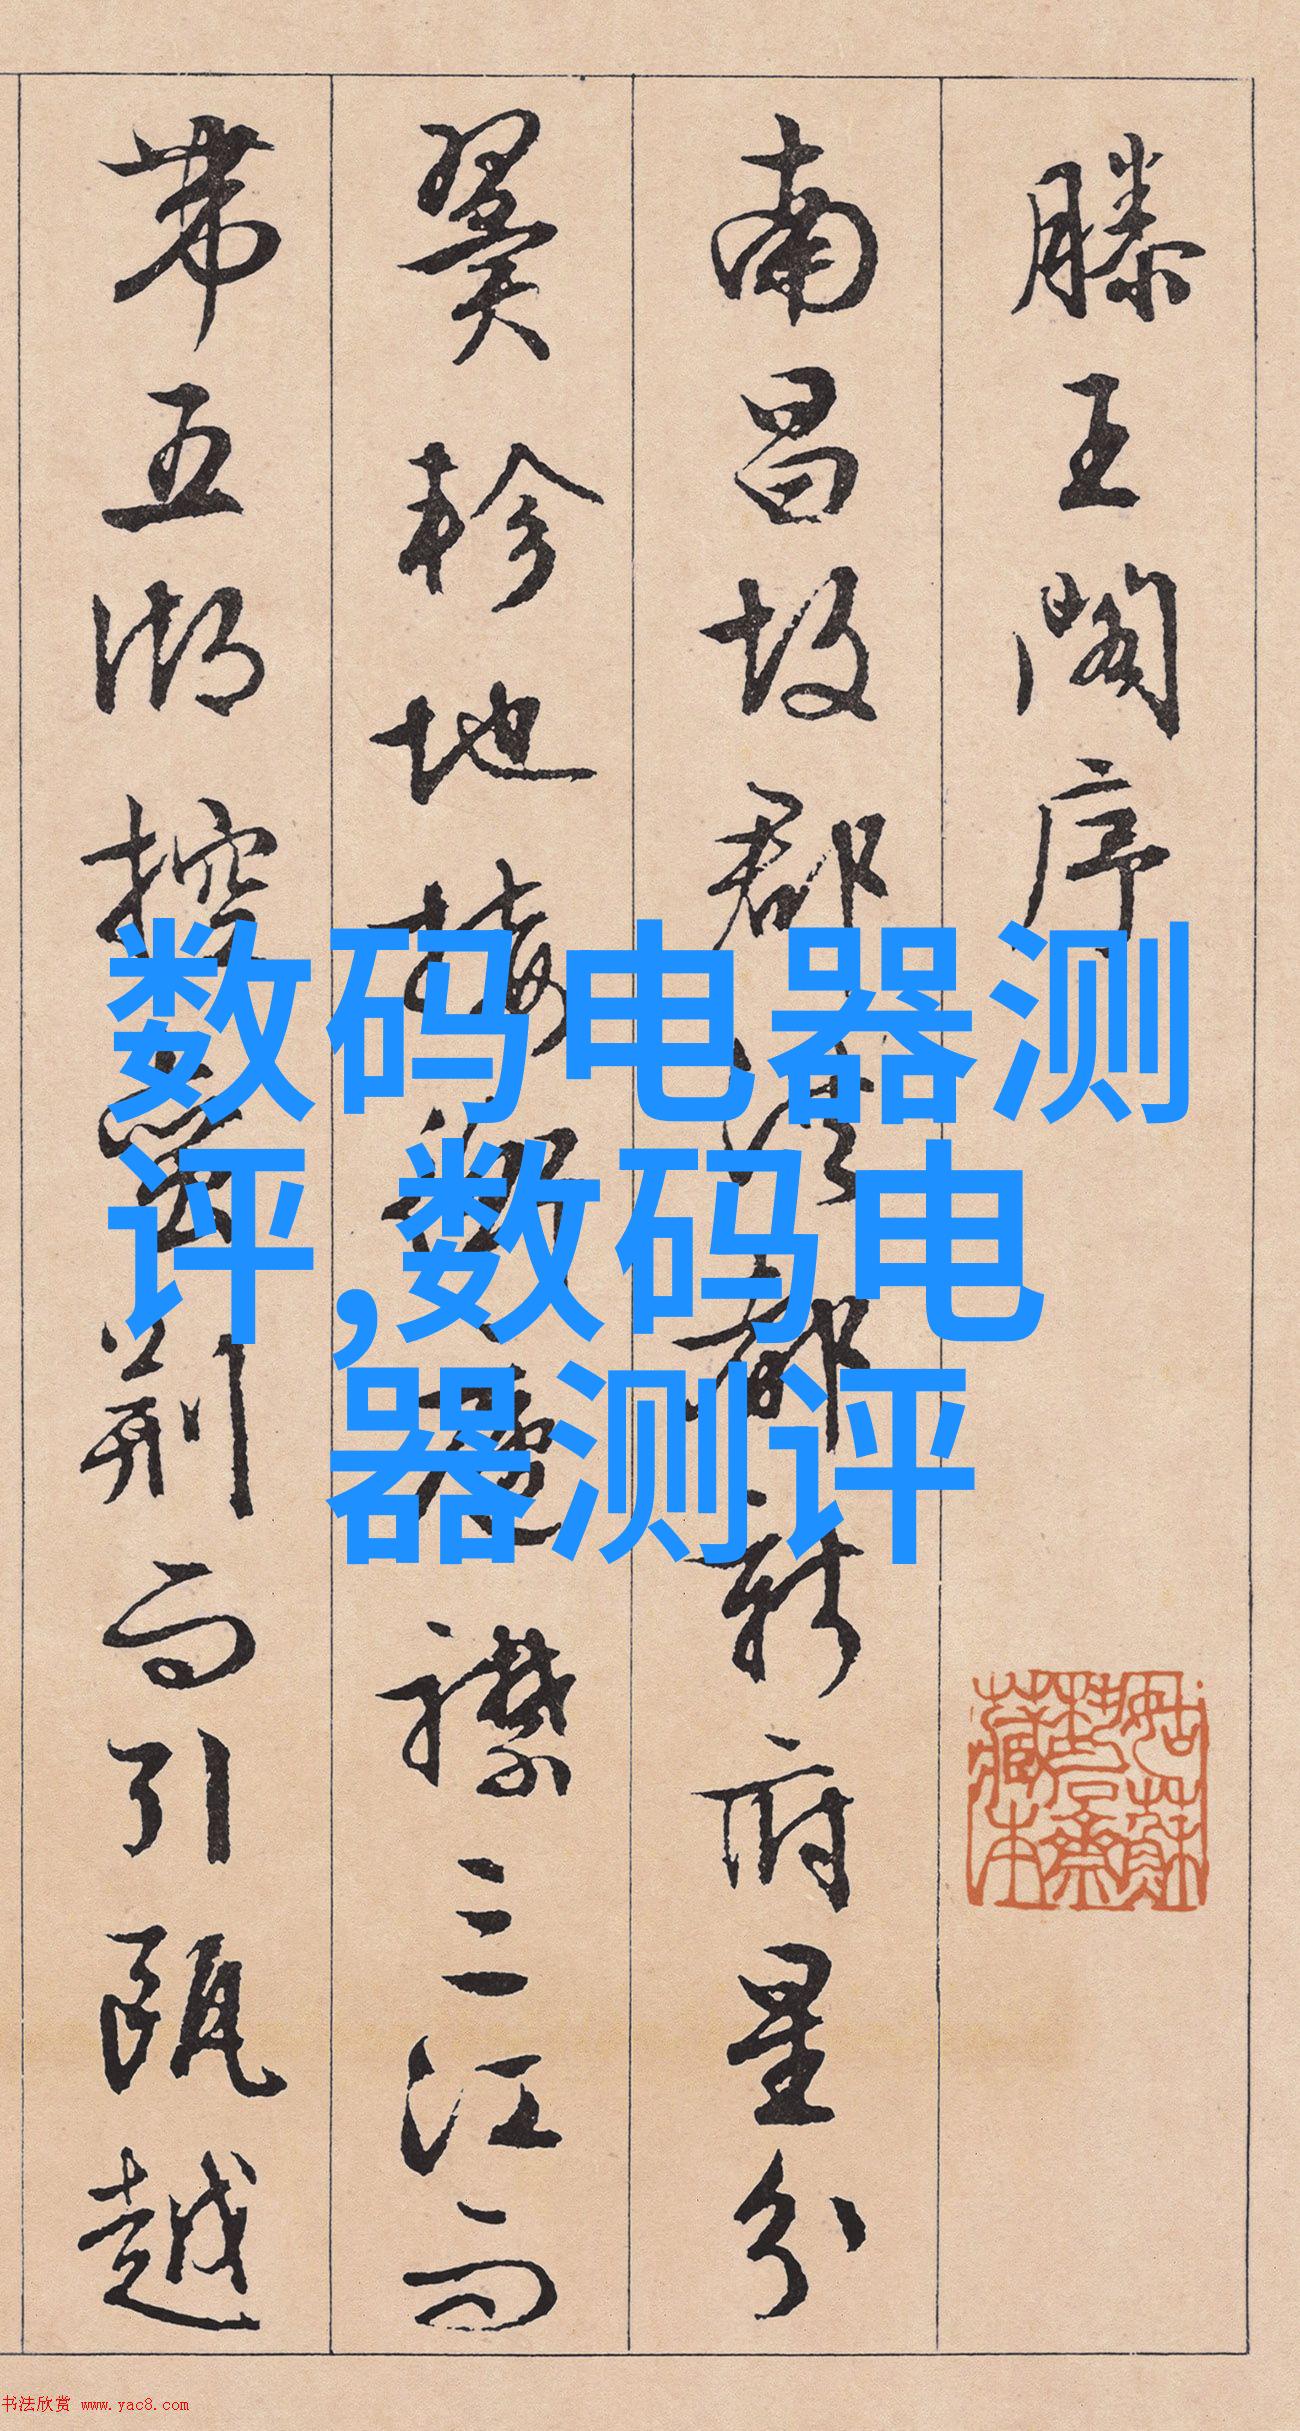 滕王閣序
南昌故郡洪都新府星分
翼軫地接衡廬襟三江而
帶五湖控蠻荆而引甌越
数码电器测
评,数码电
器测评
姑蘇
藏本
书法欣赏 www.yac8.com